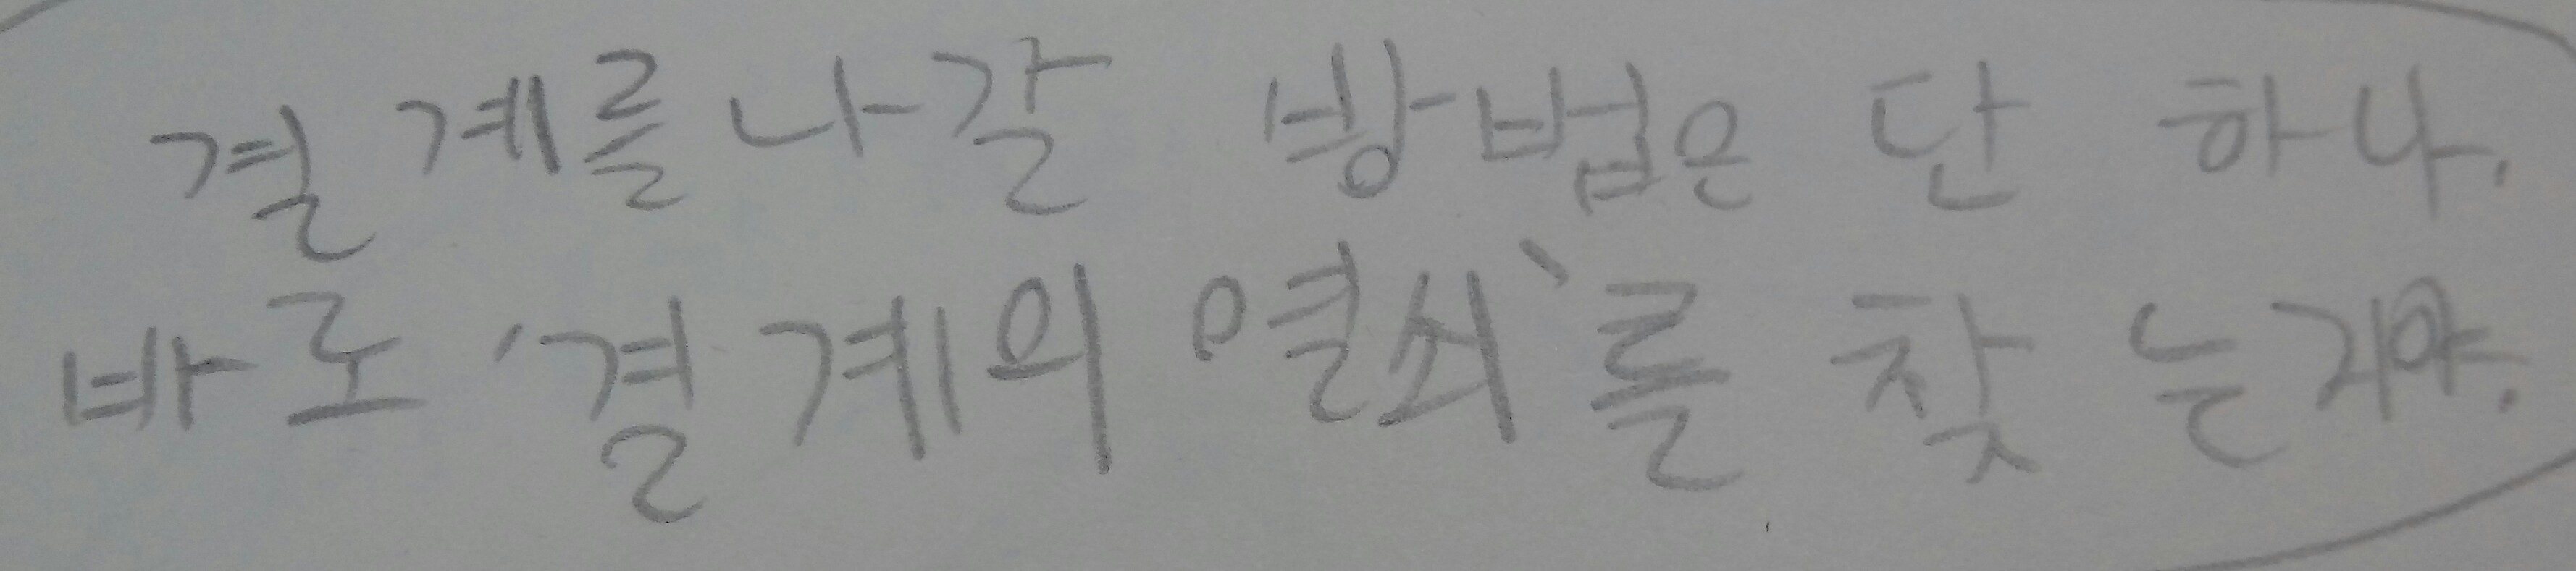 결계를 나갈 방법은 단 하나.
바로 '결계의 열쇠'를 찾는거야.